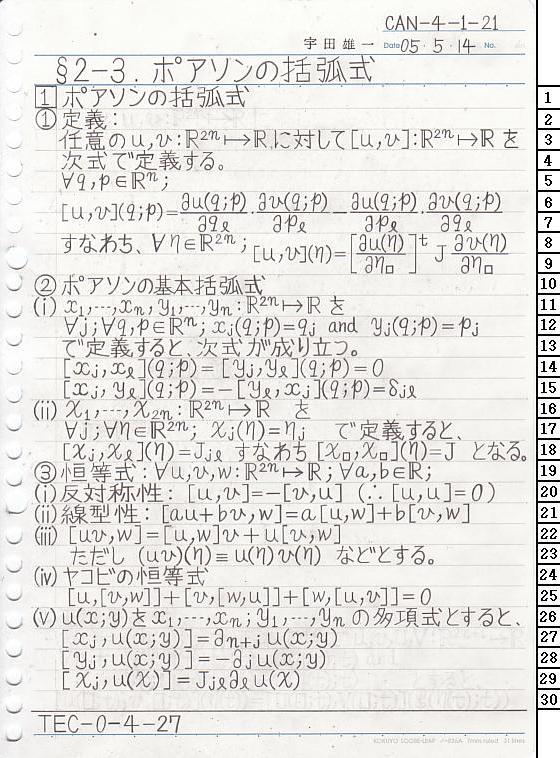 CAN-4-1-21
宇田雄一 Date 05・5・14 No.
§2-3. ポアソンの括弧式
1 ポアソンの括弧式
① 定義:
任意のu,v:ℝ²ⁿ↦ℝに対して[u,v]:ℝ²ⁿ↦ℝを
次式で定義する。
∀q,p∈ℝⁿ;
[u,v](q;p)=∂u(q;p)/∂qℓ・∂v(q;p)/∂pℓ-∂u(q;p)/∂pℓ・∂v(q;p)/∂qℓ
すなわち、∀η∈ℝ²ⁿ; [u,v](η)=[∂u(η)/∂η□]ᵗ J ∂v(η)/∂η□
② ポアソンの基本括弧式
(i) x₁,…,xₙ,y₁,…,yₙ:ℝ²ⁿ↦ℝを
∀j;∀q,p∈ℝⁿ; xⱼ(q;p)=qⱼ and yⱼ(q;p)=pⱼ
で定義すると、次式が成り立つ。
[xⱼ,xℓ](q;p)=[yⱼ,yℓ](q;p)=0
[xⱼ,yℓ](q;p)=-[yℓ,xⱼ](q;p)=δⱼℓ
(ii) χ₁,…,χ₂ₙ:ℝ²ⁿ↦ℝ を
∀j;∀η∈ℝ²ⁿ; χⱼ(η)=ηⱼ で定義すると、
[χⱼ,χℓ](η)=Jⱼℓ すなわち [χ□,χ□](η)=J となる。
③ 恒等式:∀u,v,w:ℝ²ⁿ↦ℝ;∀a,b∈ℝ;
(i) 反対称性: [u,v]=-[v,u] (∴[u,u]=0)
(ii) 線型性: [au+bv,w]=a[u,w]+b[v,w]
(iii) [uv,w]=[u,w]v+u[v,w]
ただし (uv)(η)≡u(η)v(η) などとする。
(iv) ヤコビの恒等式
[u,[v,w]]+[v,[w,u]]+[w,[u,v]]=0
(v) u(x;y)をx₁,…,xₙ;y₁,…,yₙの多項式とすると、
[xⱼ,u(x;y)]=∂ₙ₊ⱼu(x;y)
[yⱼ,u(x;y)]=-∂ⱼu(x;y)
[χⱼ,u(χ)]=Jⱼℓ∂ℓu(χ)
TEC-0-4-27
1
2
3
4
5
6
7
8
9
10
11
12
13
14
15
16
17
18
19
20
21
22
23
24
25
26
27
28
29
30